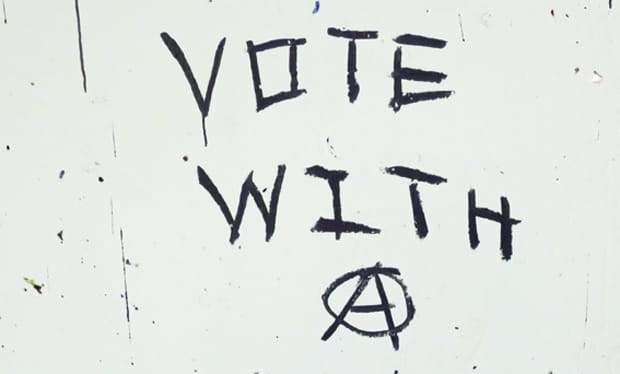 VOTE
WITH
Ⓐ